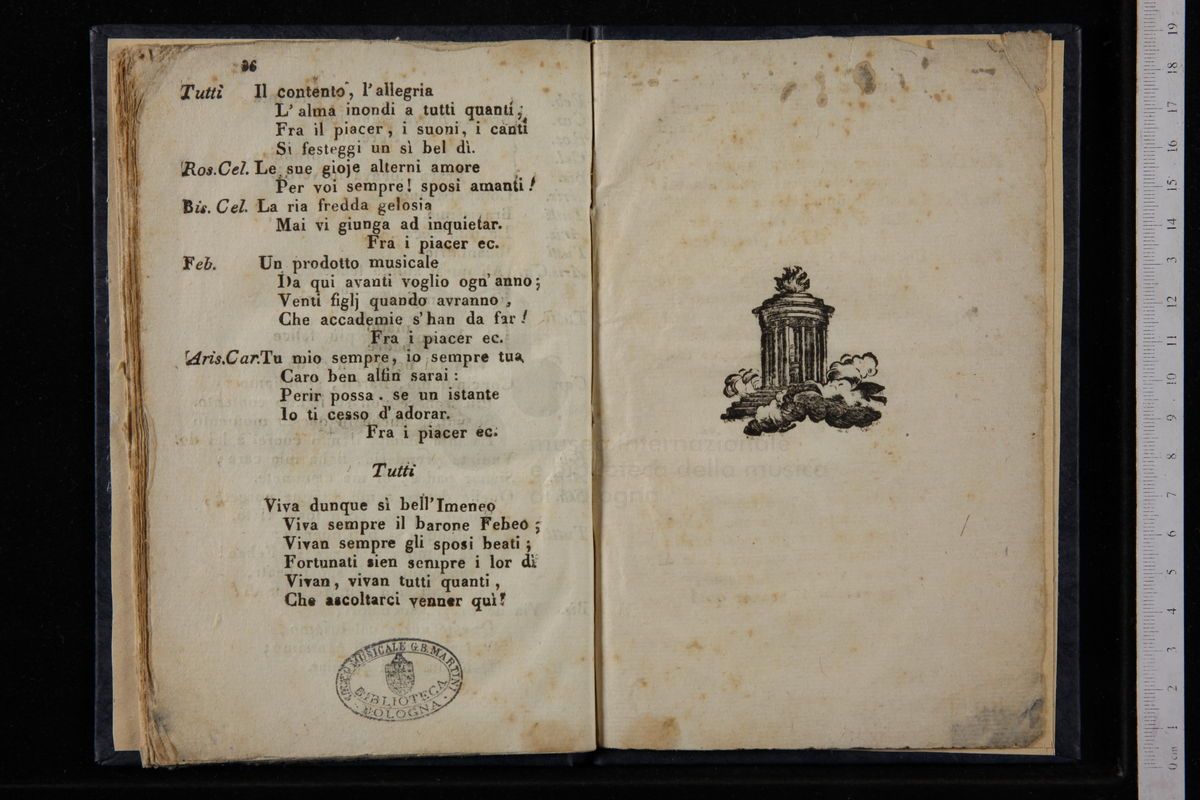 36
Tutti Il contento, l'allegria
L'alma inondi a tutti quanti;
Fra il piacer, i suoni, i canti
Si festeggi un sì bel dì.
Ros. Cel. Le sue gioje alterni amore
Per voi sempre! sposi amanti!
Bis. Cel. La ria fredda gelosia
Mai vi giunga ad inquietar.
Fra i piacer ec.
Feb. Un prodotto musicale
Da qui avanti voglio ogn'anno;
Venti figlj quando avranno,
Che accademie s'han da far!
Fra i piacer ec.
Aris. Car. Tu mio sempre, io sempre tua
Caro ben alfin sarai:
Perir possa. se un istante
Io ti cesso d'adorar.
Fra i piacer ec.
Tutti
Viva dunque sì bell'Imeneo
Viva sempre il barone Febeo;
Vivan sempre gli sposi beati;
Fortunati sien sempre i lor dì
Vivan, vivan tutti quanti,
Che ascoltarci venner quì!
LICEO MUSICALE G.B. MARTINI
BIBLIOTECA
BOLOGNA
museo internazionale
e biblioteca della musica
di bologna
0 cm 1 2 3 4 5 6 7 8 9 10 11 12 13 14 15 16 17 18 19